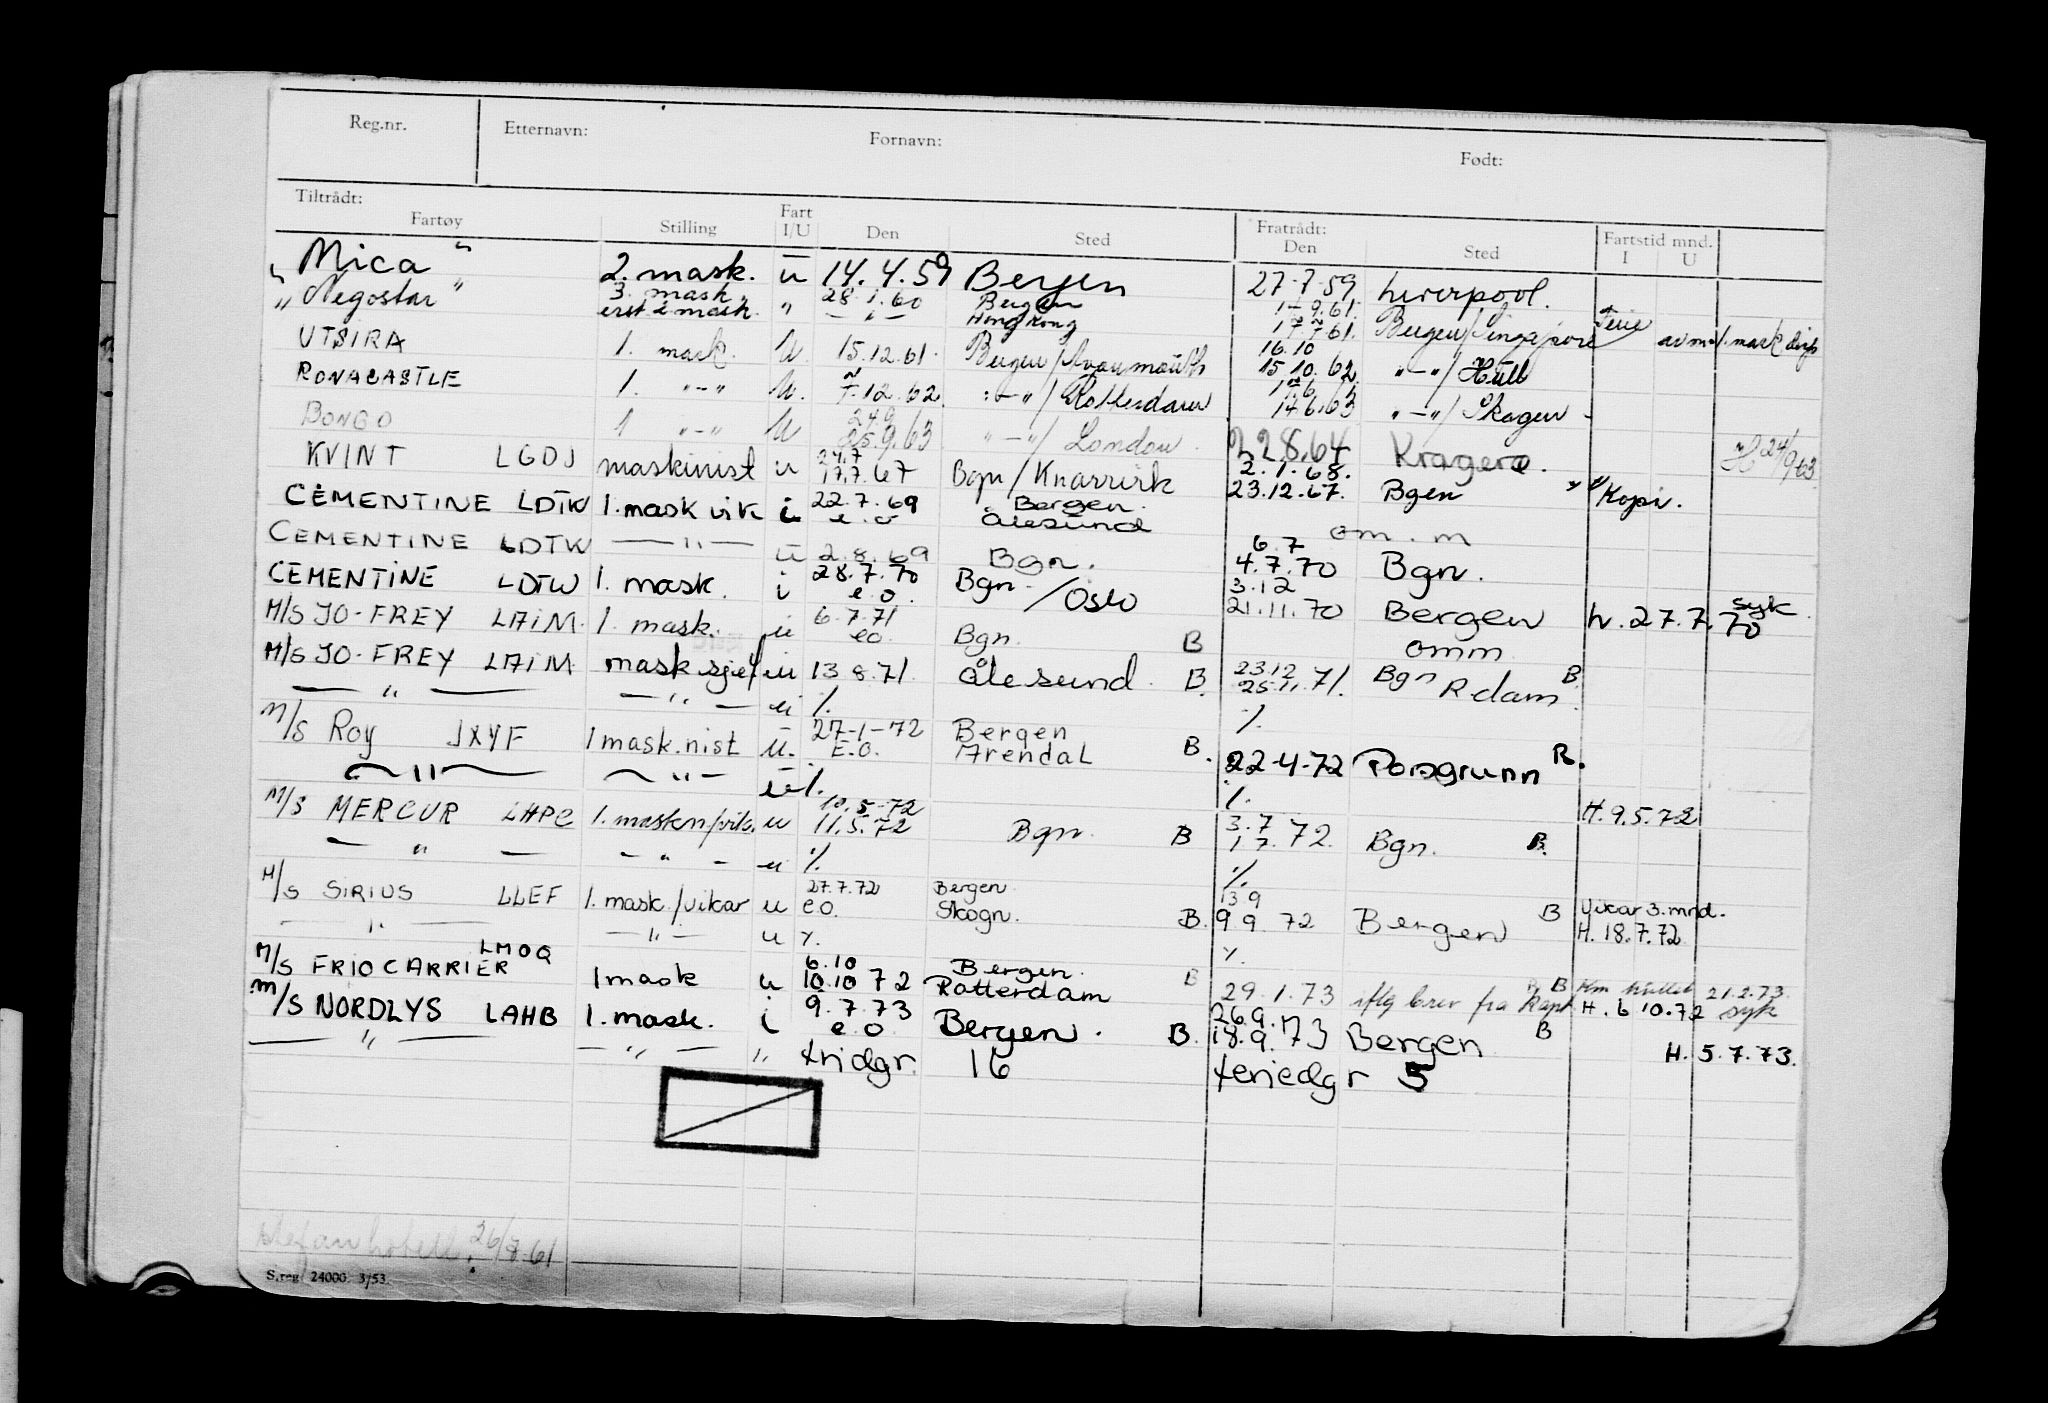 Reg.nr. Etternavn: Fornavn: Født:
Tiltrådt: Fratrådt: Fartstid mnd.
Fartøy Stilling Fart I/U Den Sted Den Sted I U
"Mica" 2. mask. u 14.4.59 Bergen 27-7-59 Liverpool.
"Negostar" 3. mask. 28.1.60 Bergen
erst 2 mask. " — " — Hong Kong Bergen/Singapore Ferie
UTSIRA 1. mask. U. 15.12.61. Bergen/Avonmouth 16.10
15.10.62 " — "/Hull
RONACASTLE 1. " - " U. 12.62 " — "/Rotterdam 14.6.63 " — "/Skagen
BONGO 1 " - " U 24.9
25.9.63 " — "/London 22.8.64 Kragerø. 24/9 63
KVINT LGDJ maskinist u 24.7
17.7.67 Bgn/Knarrvik 2.1.68.
23.12.67. Bgen " " Kopi.
CEMENTINE LDTW 1. mask vik i 22.7.69 Bergen.
e.o Ålesund om.m
CEMENTINE LDTW — " — u 2.8.69 Bgn. 6.7
4.7.70 Bgn.
CEMENTINE LDTW 1. mask. i 28.7.70
e.o. Bgn./Oslo 3.12
21.11.70 Bergen h. 27.7.70 syk.
M/S JO-FREY LAIM. 1. mask. u 6.7.71
eo. Bgn. B omm
M/S JO-FREY LAIM mask.sjef u 13.8.71. Ålesund. B. 23.12
25.11.71. Bgn B.
R-dam.
— " — — " — u %. %.
M/S Roy JXYF 1 mask.nist u. 27-1-72 Bergen
E.O. Arendal B. 22-4-72 Porsgrunn R.
— " — — " — u %. %. H. 9.5.72
M/S MERCUR LHPC 1. maskn/vik. u 10.5-72
11.5.72 Bgn. B 3.7
1 7.72. Bgn. B.
— " — — " — u %. %.
M/S SIRIUS LLEF 1. mask./vikar u 27.7.72 Bergen
eo. Skogn. B. 13 9
9 9 72 Bergen B Vikar 3. mnd.
H. 18.7.72
— " — — " — u %. %.
M/S FRIOCARRIER LMOQ 1 mask u 6.10 Bergen.
10.10 72 Rotterdam B 29.1.73 iflg brev fra kapt. B H. 6 10.72 21.2.73. syk
M/S NORDLYS LAHB 1. mask. i 9.7.73
e.o. Bergen. B. 26.9.
18.9.73 Bergen B H. 5.7.73.
— " — — " — " fridgr. 16 feriedgr 5
26/8-61
S.reg. 24000. 3/53.